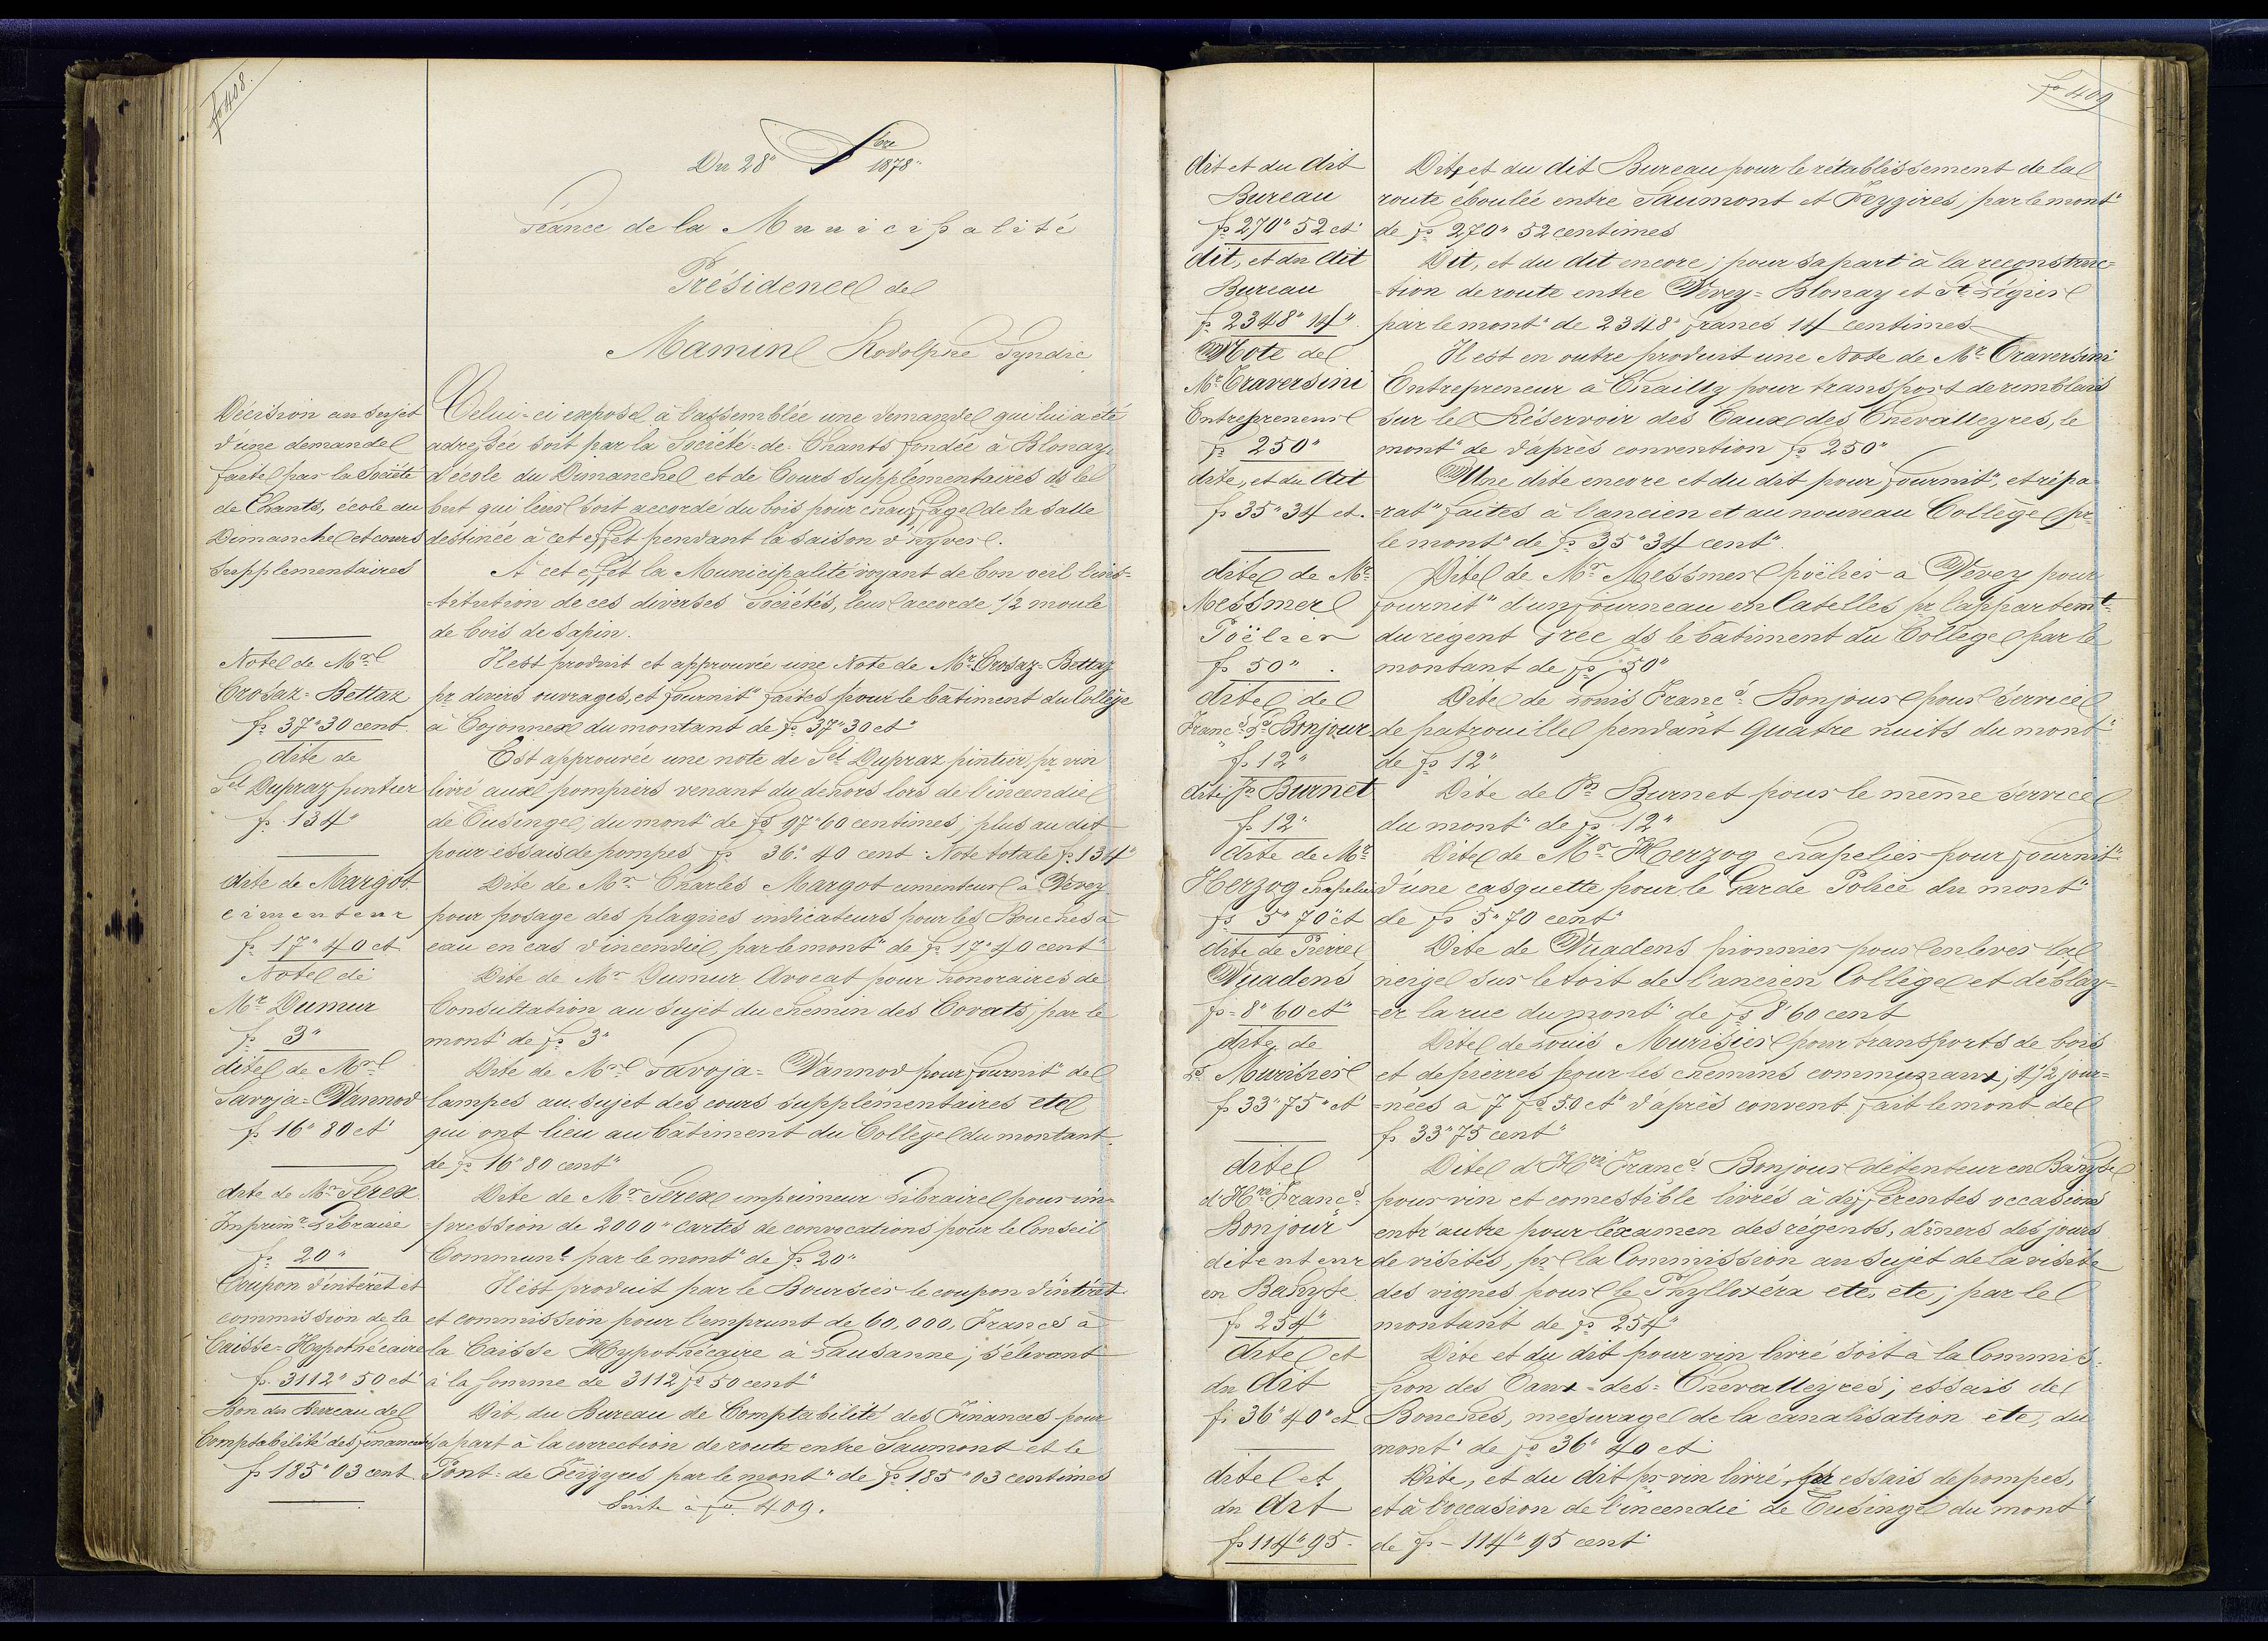 fo 408.
Du 28" bre 1878.
Séance de la Municipalité
Présidence de
Mamin Rodolphe Syndic
Décision au sujet
d'une demande
faite par la Société
de Chants, école du
Dimanche et cours
supplémentaires
Celui-ci expose à l'assemblée une demande qui lui a été
adressée soit par la Société-de-Chants fondée à Blonay,
d'école du Dimanche et de Cours supplémentaires ds le
but qui leur soit accordé du bois pour chauffage de la salle
destinée à cet effet pendant la saison d'hyver.
A cet effet la Municipalité voyant de bon oeil l'ins=
=titution de ces diverses Sociétés, leur accorde 1/2 moule
de bois de sapin.
Note de Mr
Crosaz=Bettaz
fs 37"30 cent.
Il est produit et approuvée une Note de Mr Crosaz=Bettaz
pr divers ouvrages, et fournit" faites pour le bâtiment du Collège
à Cojonnex du montant de fs 37"30 ct"
dite de
Sel Dupraz pintier
fs 134"
Est approuvée une note de Sel Dupraz pintier, pr vin
livré aux pompiers venant du dehors lors de l'incendie
de Tusinge, du mont" de fs 97"60 centimes, plus au dit
pour essais de pompes fs 36". 40 cent. Note totale fs 134"
dite de Margot
cimenteur
fs 17"40 ct
Dite de Mr Charles Margot cimenteur à Vevey
pour posage des plaques indicateurs pour les Bouches à
eau en cas d'incendie, par le mont" de fs 17"40 cent"
Note de
Mr Dumur
fs 3"
Dite de Mr Dumur Avocat pour honoraires de
Consultation au sujet du chemin des Covats, par le
mont" de fs 3"
dite de Mr
Savoja=Vannod
fs 16"80 ct
Dite de Mr Savoja=Vannod pour fournit" de
lampes au sujet des cours supplémentaires etc
qui ont lieu au bâtiment du Collège du montant
de fs 16"80 cent"
dite de Mr Serex
Imprimr Libraire
fs 20"
Dite de Mr Serex imprimeur Libraire pour im=
=pression de 2000" cartes de convocations pour le Conseil
Communl par le mont" de fs 20"
Coupon d'intérêt et
commission de la
Caisse=Hypothécaire
fs. 3112"50 ct
Il est produit par le Boursier le coupon d'intérêt
et commission pour l'emprunt de 60,000, Francs à
la Caisse Hypothécaire à Lausanne, s'élevant
à la somme de 3112 fs 50 cent"
Bon du Bureau de
Comptabilité des finances
fs 185"03 cent.
Dit, du Bureau de Comptabilité des Finances pour
sa part à la correction de route entre Saumont et le
Pont=de Feygyres par le mont" de fs 185"03 centimes
Suite à fo. 409.
fo 409
dit et du dit
Bureau
fs 270"52 ct
Dit, et du dit Bureau pour le rétablissement de la
route éboulée entre Saumont et Feygires, par le mont"
de fs 270" 52 centimes
dit, et du dit
Bureau
fs 2348"14"
Dit, et du dit encore, pour sa part à la reconstruc=
=tion de route entre Vevey=Blonay et St Légier
par le mont" de 2348" francs 14 centimes
Note de
Mr Traversini
Entrepreneur
fs 250"
Il est en outre produit une Note de Mr Traversini
Entrepreneur à Chailly pour transport de remblais
sur le Réservoir des Eaux des Chevalleyres, le
mont" de d'après convention fs 250"
dite, et du dit
fs 35"34 ct.
Une dite encore et du dit pour fournit", et répa=
=rat" faites à l'ancien et au nouveau Collège pr
le mont" de fs 35"34 cent".
dite de Mr
Messmer
Poëlier
fs 50".
Dite de Mr Messmer poëlier à Vevey pour
fournit" d'un fourneau en Catelles pr l'appartemt
du régent Grec ds le bâtiment du Collège par le
montant de fs 50"
dite de
Francs Ls Bonjour
fs 12"
Dite de Louis Francs Bonjour pour service
de patrouille pendant quatre nuits du mont"
de fs 12"
dite Jn Burnet
fs 12"
Dite de Jn Burnet pour le même service
du mont" de fs 12"
dite de Mr
Herzog Chapelier
fs 5"70 ct
Dite de Mr Herzog chapelier pour fournit"
d'une casquette pour le Garde Police du mont"
de fs 5"70 cent"
dite de Pierre
Vuadens
fs 8"60 ct"
Dite de Vuadens pionnier pour enlever la
neige sur le toit de l'ancien Collège et déblay=
=er la rue du mont" de fs 8"60 cent
dite, de
Ls Murisier
fs 33"75 ct
Dite de Louis Murisier pour transports de bois
et de pierres pour les chemins communaux, 4 1/2 jour=
=nées à 7 fs 50 ct" d'après convent fait le mont de
fs 33"75 cent"
dite
d'Hri Francs
Bonjour
ditenteur
en Bahyse
fs 254"
Dite d'Hri Francs Bonjour détenteur en Bahyse
pour vin et comestible livrés à différentes occasions
entr'autre pour l'éxamen des régents, dîners des jours
de visites, pr la Commission au sujet de la visite
des vignes pour le Phylloxéra etc, etc, par le
montant de fs 254"
dite et
du dit
fs 36"40" ct
Dite et du dit pour vin livré soit à la Commis=
=sion des Eaux=des=Chevalleyres, essais de
Bouches, mesurage de la canalisation etc, du
mont" de fs 36" 40 ct
dite et
du dit
fs 114"95.
Dite, et du dit pr vin livré, pr essais de pompes,
et à l'occasion de l'incendie de Tusinge du mont"
de fs - 114" 95 cent